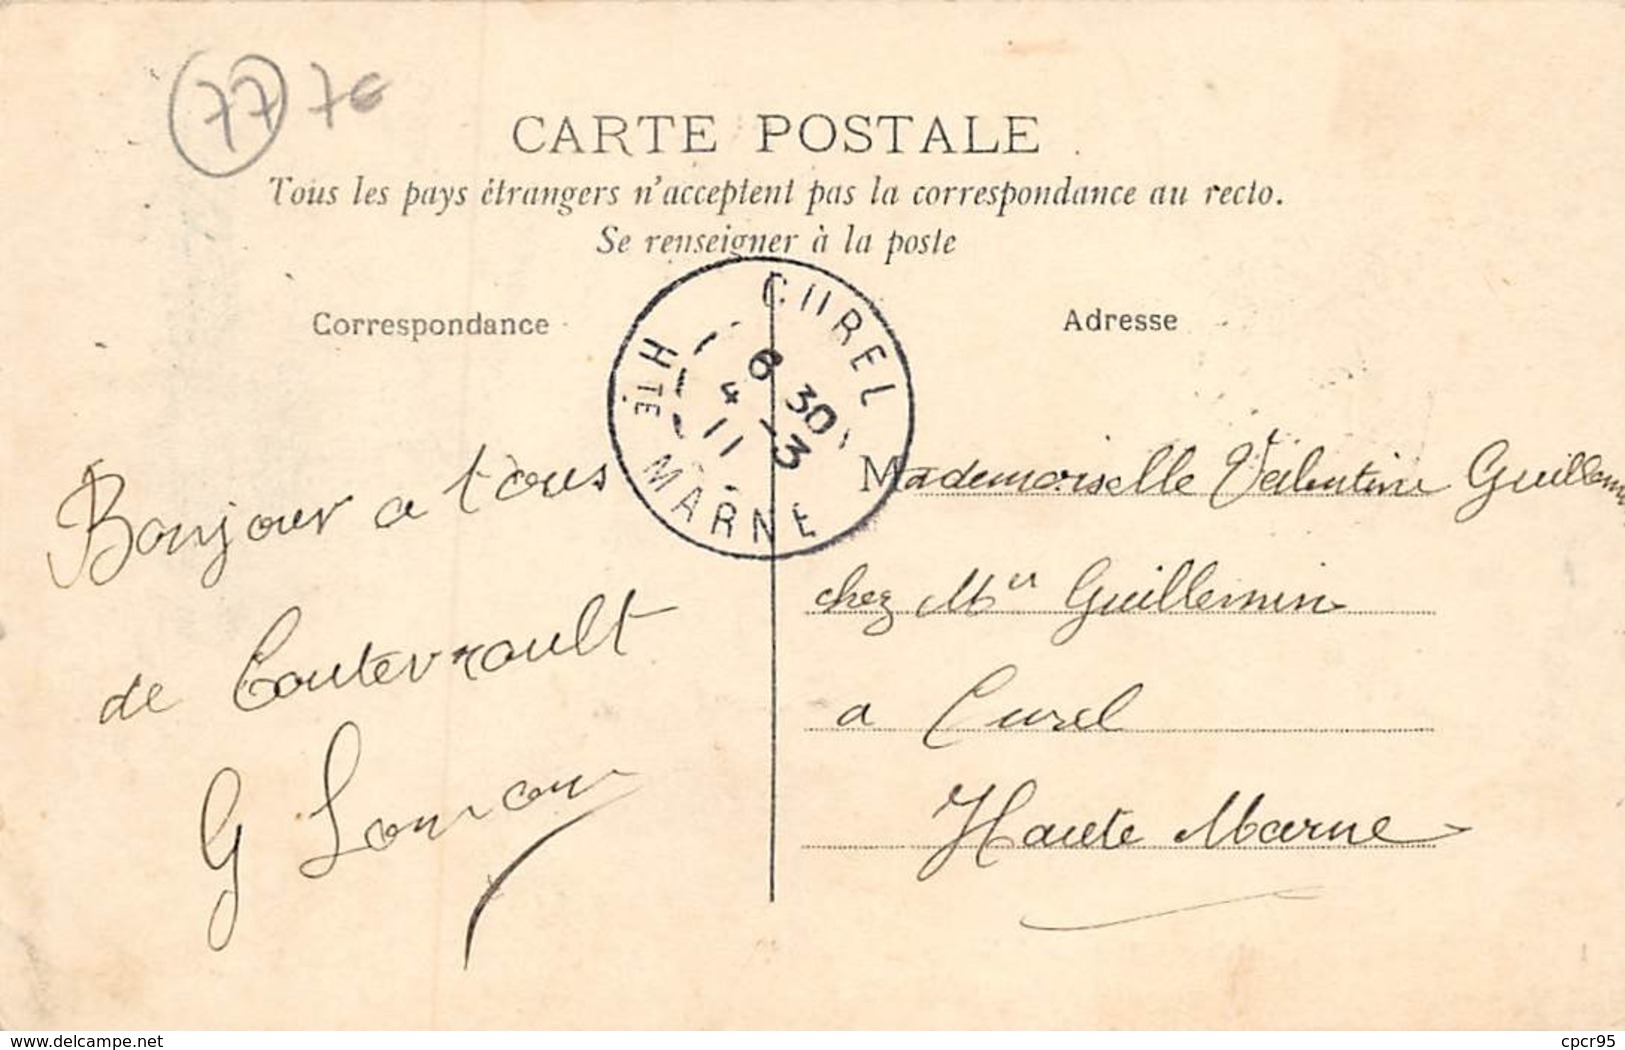 77 7€
CARTE POSTALE
Tous les pays étrangers n'acceptent pas la correspondance au recto.
Se renseigner à la poste
Correspondance
Adresse
CUREL
6 30
4 - 3
11
HTE MARNE
Bonjour a tous
de Coutevroult
G
Mademoiselle Valentine Guillemin
chez Mr Guillemin
a Curel
Haute Marne
www.delcampe.net
cpcr95